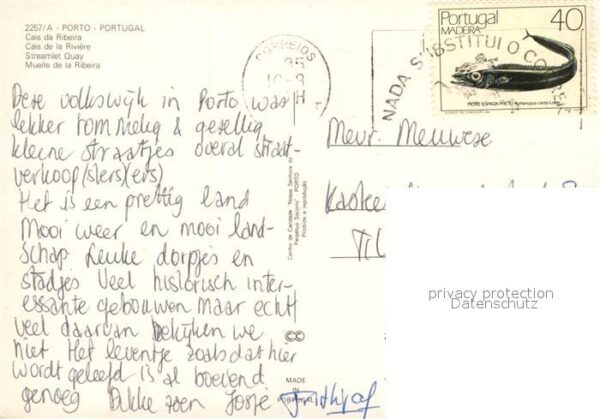 2257/A - PORTO - PORTUGAL
Cais da Ribeira
Cais de la Rivière
Streamlet Quay
Muelle de la Ribeira
Deze volkswijk in Porto was
lekker rommelig & gezellig
kleine straatjes overal straat-
verkoop(sters)(ers)
Het is een prettig land
Mooi weer en mooi land-
schap Leuke dorpjes en
stadjes Veel historisch inter-
essante gebouwen maar echt
veel daarvan bekijken we
niet. Het leventje zoals dat hier
wordt geleefd is al boeiend
genoeg Dikke zoen Josje
Centro de Caridade "Nossa Senhora do
Perpétuo Socorro" PORTO
Proibida a reprodução
CC
MADE
IN
PORTUGAL
CORREIOS
85
NADA SUBSTITUI O
Portugal 40
MADEIRA
PEIXE ESPADA PRETO Aphanopus carbo
Mevr. Meuwese
privacy protection
Datenschutz